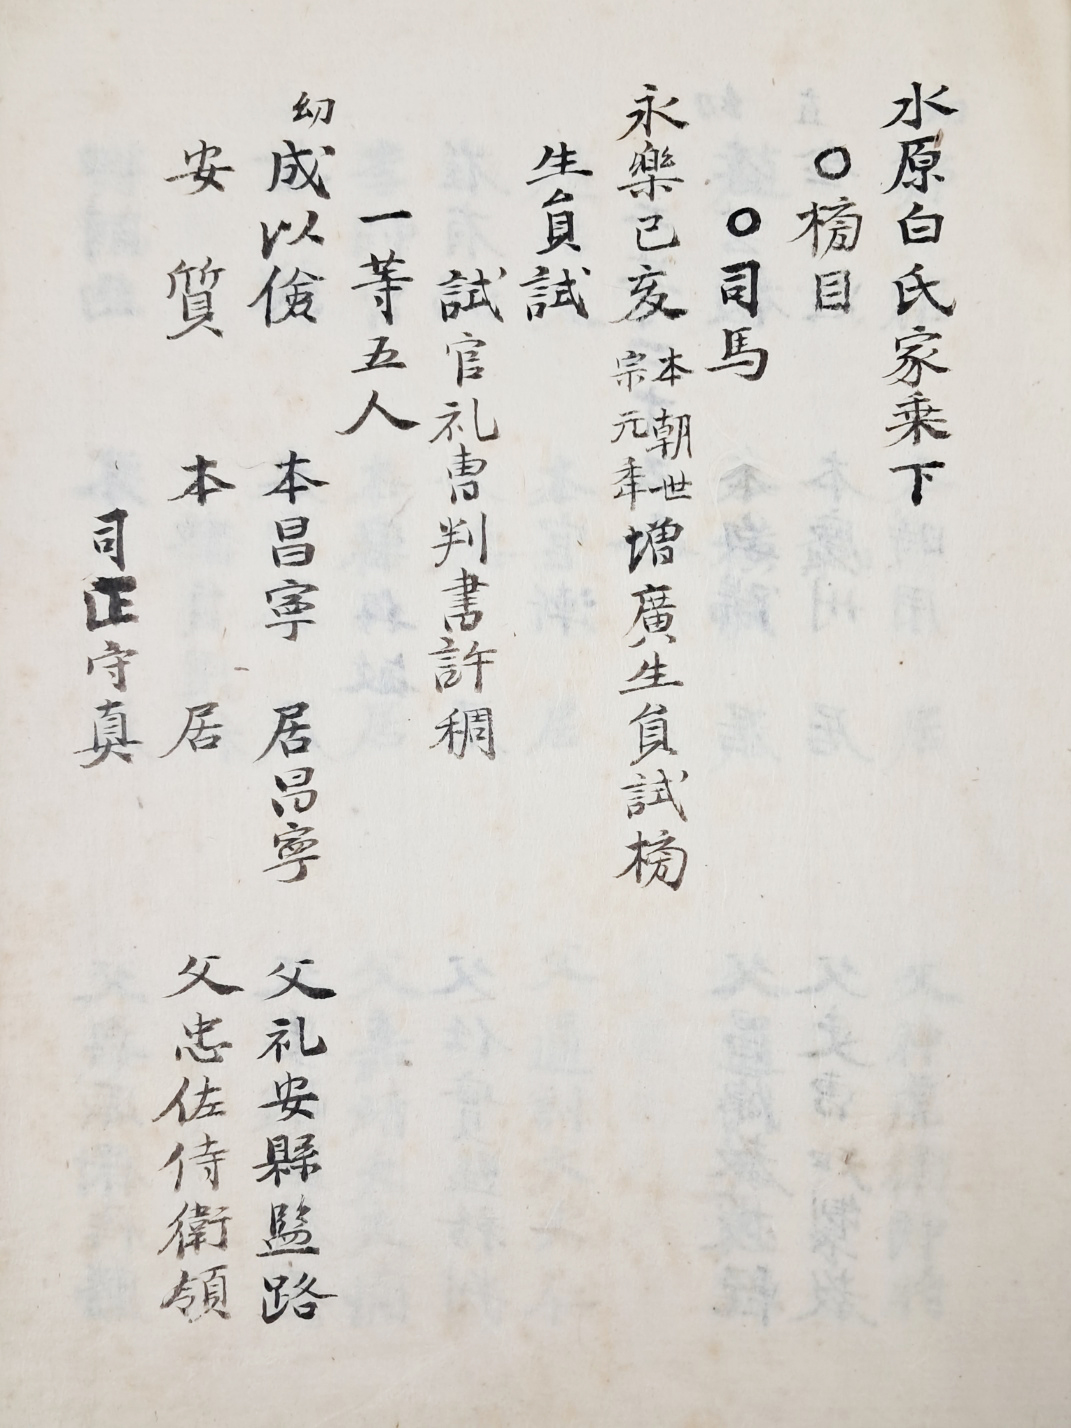 水原白氏家乗下
○榜目
○司馬
永樂己亥本朝世宗元年增廣生員試榜
生員試
試官礼曹判書許稠
一等五人
幼成以儉 本昌寧 居昌寧 父礼安縣監路
安質 本 居 父忠佐侍衛領
司正守真